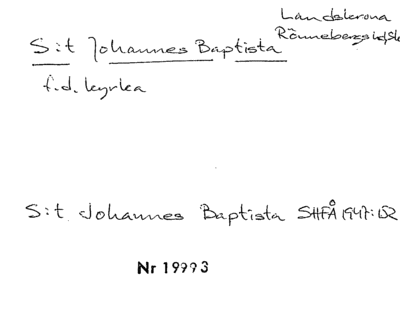 Landskrona
S:t Johannes Baptista
Rönnebergs hd, Sk
f.d. kyrka
S:t Johannes Baptista SHFÅ 1947:152
Nr 19993